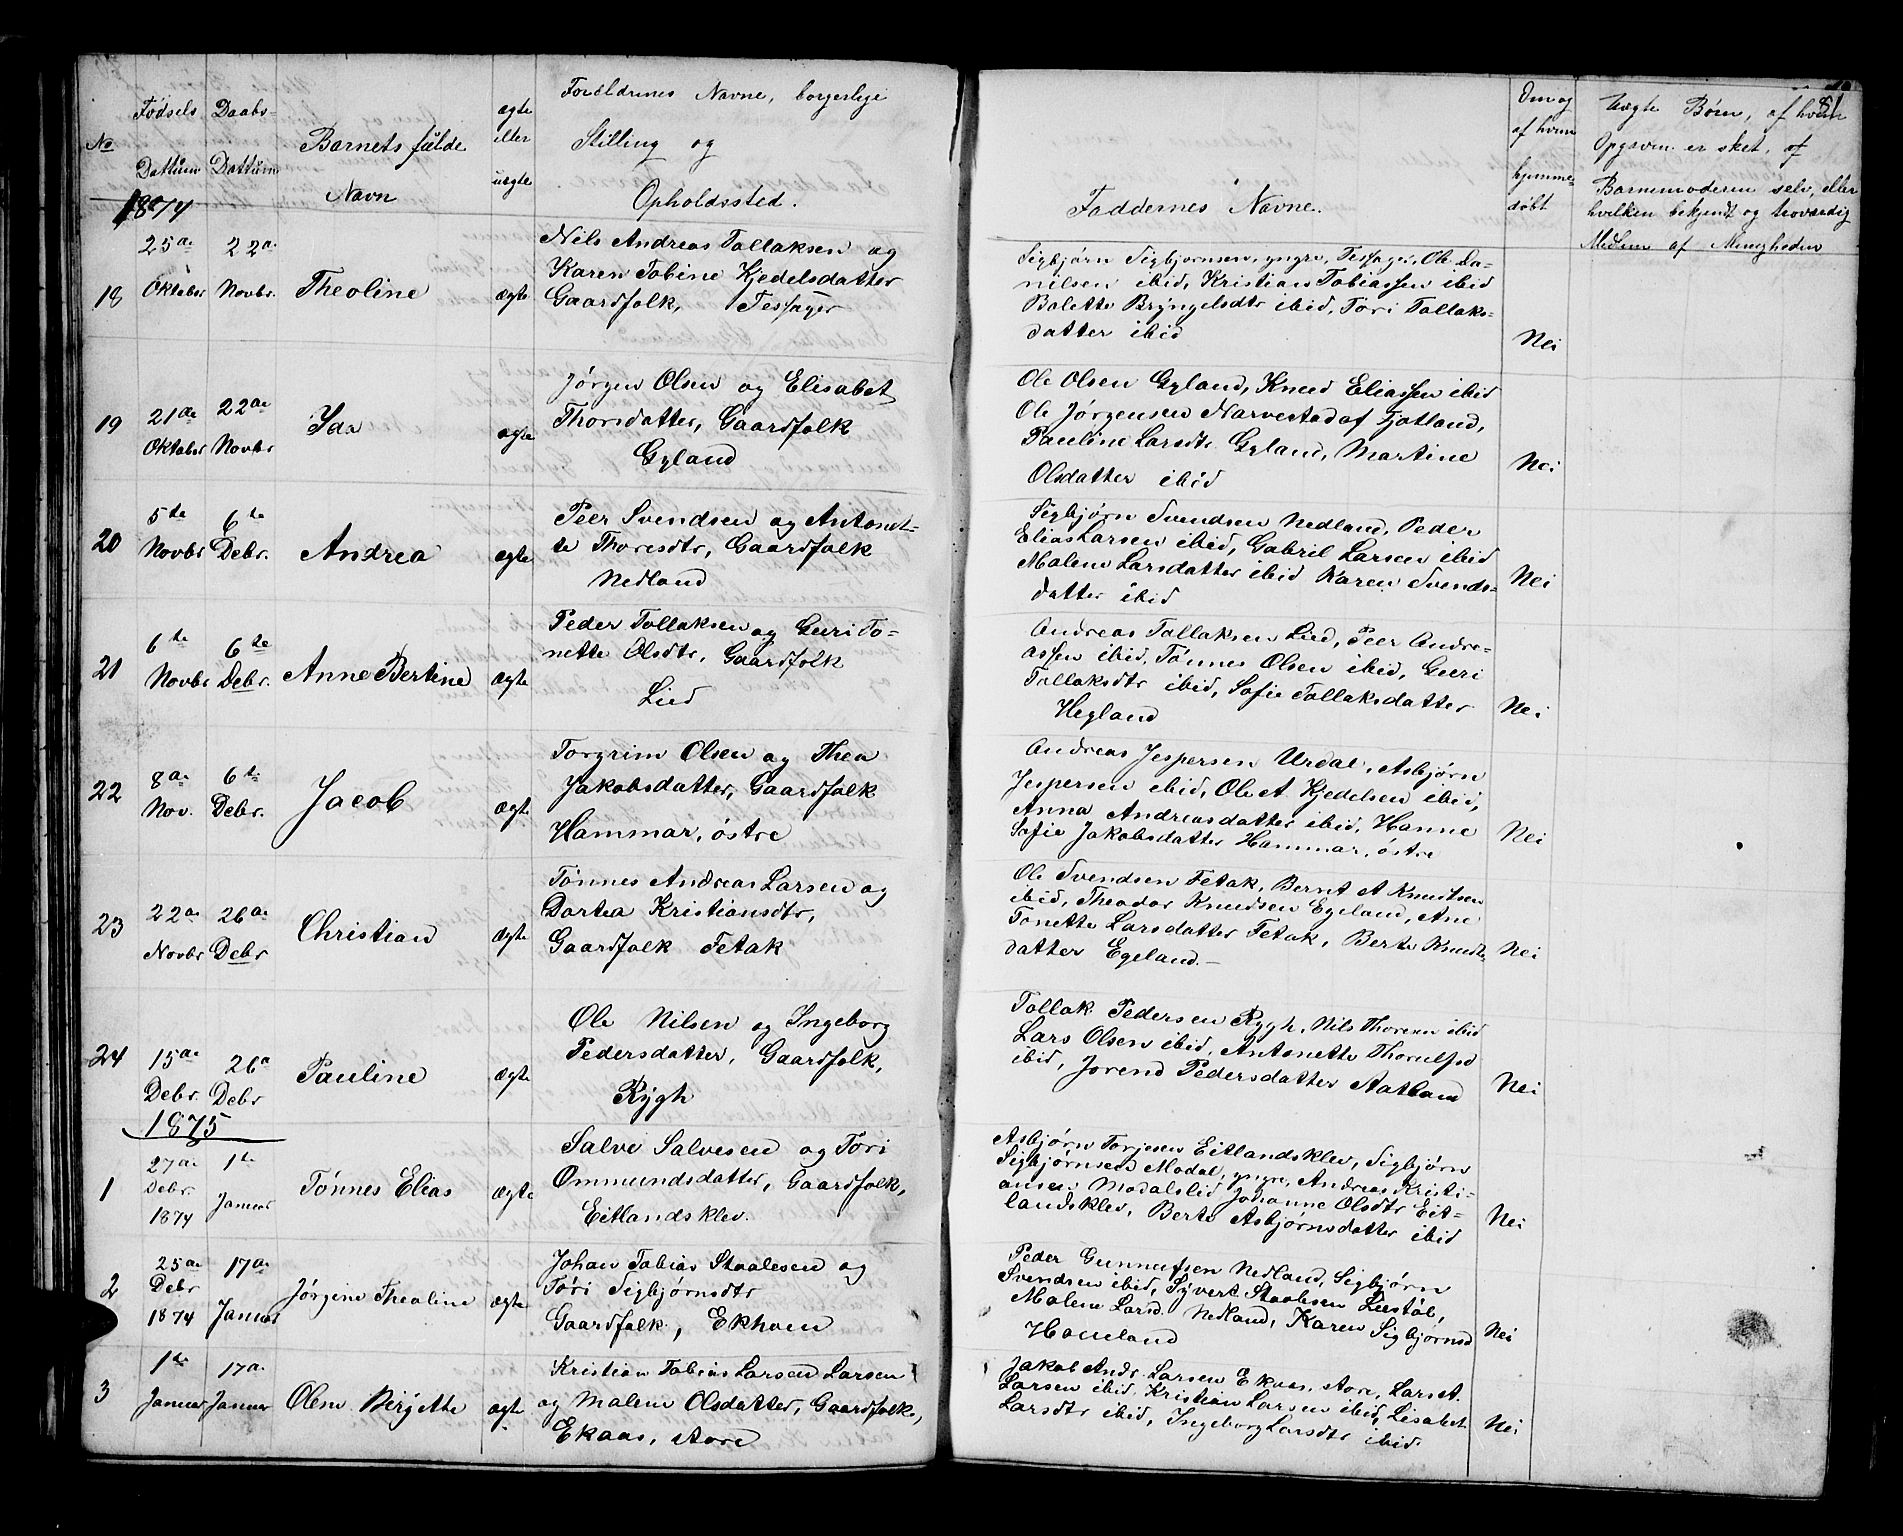 81
No
Fødsels Dattum
Daabs- Dattum
Barnets fulde Navn
ægte eller uægte
Forældrenes Navne, borgerlige
Stilling og
Opholdssted.
Faddernes Navne.
Om og af hvem hjemme- døbt
Uægte Børn, af hvem
Opgaven er sket, af
Barnemoderen selv, eller
hvilken bekjendt og troværdig
Medlem af Menigheden
1874
18
25de Oktober
22de Novbr.
Theoline
ægte
Nils Andreas Tollaksen og
Karen Tobine Kjedelsdatter
Gaardfolk, Tessager
Sigbjørn Sigbjørnsen, yngre, Tessager, Ole Da-
nilsen ibid, Kristian Tobiassen ibid
Bolette Bryngelsdtr ibid, Tori Tollaks-
datter ibid
Nei
19
21de Oktober
22de Novbr
Ida
ægte
Jørgen Olsen og Elisabet
Thorsdatter, Gaardfolk
Gyland
Ole Olsen Gyland, Knud Eliassen ibid
Ole Jørgensen Narvestad af Fjotland,
Pauline Larsdtr Gyland, Martine
Olsdatter ibid
Nei
20
5te Novbr
6te Debr.
Andrea
ægte
Peer Svendsen og Antonet-
te Thoresdtr, Gaardfolk
Nedland
Sigbjørn Svendsen Nedland, Peder
Elias Larsen ibid, Gabril Larsen ibid
Malene Larsdatter ibid Karen Svends-
datter ibid
Nei
21
6te Novbr
6te Debr.
Anne Bertine
ægte
Peder Tollaksen og Guri To-
nette Olsdtr, Gaardfolk
Lied
Andreas Tollaksen Lied, Peer Andre-
assen ibid, Tønnes Olsen ibid, Guri
Tollaksdtr ibid, Sofie Tollaksdatter
Hegland
Nei
22
8de Nov.
6te Debr.
Jacob
ægte
Torgrim Olsen og Thea
Jakobsdatter, Gaardfolk
Hammar, østre
Andreas Jespersen Urdal, Asbjørn
Jespersen ibid, Ole A. Kjedelsen ibid,
Anna Andreasdatter ibid, Hanne
Sofie Jakobsdatter Hammar, østre
Nei
23
22de Novbr
26de Debr
Christian
ægte
Tønnes Andreas Larsen og
Dortea Kristiansdtr,
Gaardfolk Fetak
Ole Svendsen Fetak, Bernt A Knudsen
ibid, Theodor Knudsen Egeland, Ane
Tonette Larsdatter Fetak, Berte Knuds-
datter Egeland.-
Nei
24
15de Debr.
26de Debr
Pauline
ægte
Ole Nilsen og Ingeborg
Pedersdatter, Gaardfolk,
Rygh
Tollak Pedersen Rygh, Nils Thoresen ibid
Lars Olsen ibid, Antonette
ibid, Jorend Pedersdatter Aatland
Nei
1875
1
27de Debr. 1874
1te Januar
Tønnes Elias
ægte
Salve Salvesen og Tori
Ommundsdatter, Gaardfolk,
Eitlandsklev.
Asbjørn Torjesen Eitlandsklev, Sigbjørn
Sigbjørnsen Modal, yngre, Andreas Kristi-
ansen Modalslid Johanne Olsdtr Eit-
landsklev, Berte Asbjørnsdatter ibid
Nei
2
25de Debr 1874
17de Januar
Jørgine Theoline
ægte
Johan Tobias Staalesen og
Tori Sigbjørnsdtr
Gaardfolk, Ekhom
Peder Gunnufsen Nedland, Sigbjørn
Svendsen ibid, Syvert Staalesen Liestøl,
Malene Larsd. Nedland, Karen Sigbjørnsd
Homland
Nei
3
1te Januar
17de Januar
Olene Birgette
ægte
Kristian Tobias Larsen Larsen
og Malene Olsdatter, Gaardfolk,
Ekaas, store
Jakob Andr. Larsen Ekaas, store, Lars A.
Larsen ibid, Kristian Larsen ibid, Lisabet
Larsdtr ibid, Ingeborg Larsdtr ibid
Nei